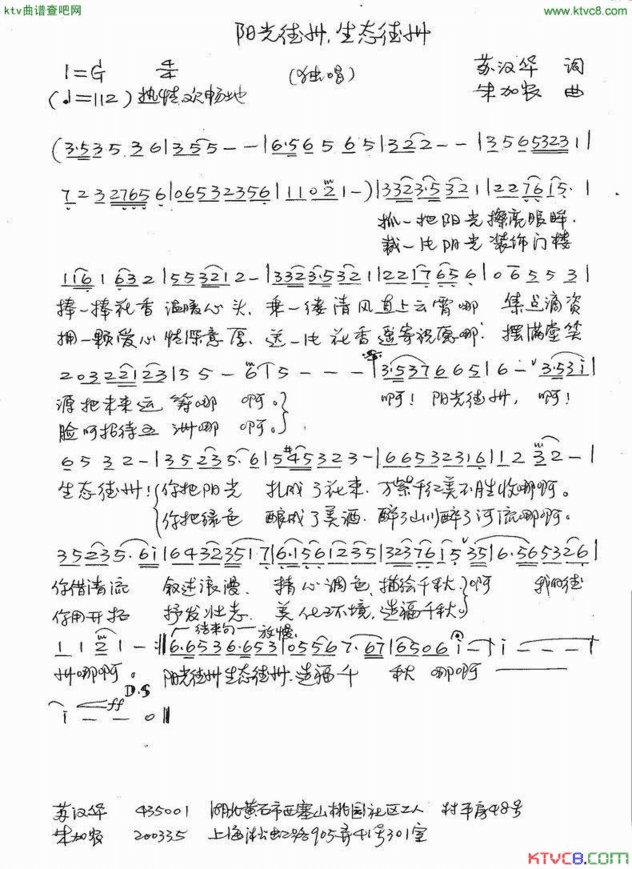 ktv曲谱查吧网
www.ktvc8.com
阳光徳州.生态徳州
1=G 4/4 (独唱) 苏汉华 词
(♩=112) 热情欢畅地 朱加农 曲
(3·535 36|355--|6·565 65|322--|356532 31|
723 27656|06532356|1102 1-)|3323·5321|22 76 15·|
抓一把阳光擦亮眼眸.
裁一片阳光装饰门楼
116 1632|553212-|3323·5321|2217656|06553|
捧一捧花香温暖心头.乘一缕清风直上云霄哪 集点滴资
拥一颗爱心情深意厚.送一片花香遥寄祝愿哪.摆满堂笑
203221 23|55-6|5---|3·537665|6-3·53i|
源把未来运筹哪 啊。 啊!阳光徳州,啊!
脸呵招待五洲哪 啊。
6532-|35235·6|5#45323-|66532316|1132-|
生态徳州!你把阳光 扎成了花束.万紫千红美不胜收哪啊。
你把绿色 酿成了美酒.醉了山川醉了河流哪啊。
35235·6i|643235 17|6·156 1235|3237615 35|6·565326|
你借清流 叙述浪漫.精心调色.描绘千秋.啊 我的徳
你用开拓 抒发壮志.美化环境.造福千秋。
112 1-‖6·6536·653|05567·67|6506i-|i---|
结束句 放慢
州哪啊。 阳光徳州生态徳州.造福千 秋 哪啊
D.S
ff
i--0‖
苏汉华 435001 湖北黄石市西塞山桃园社区工人村平房48号
朱加农 200335 上海淞虹路905弄41号301室
KTVC8.COM